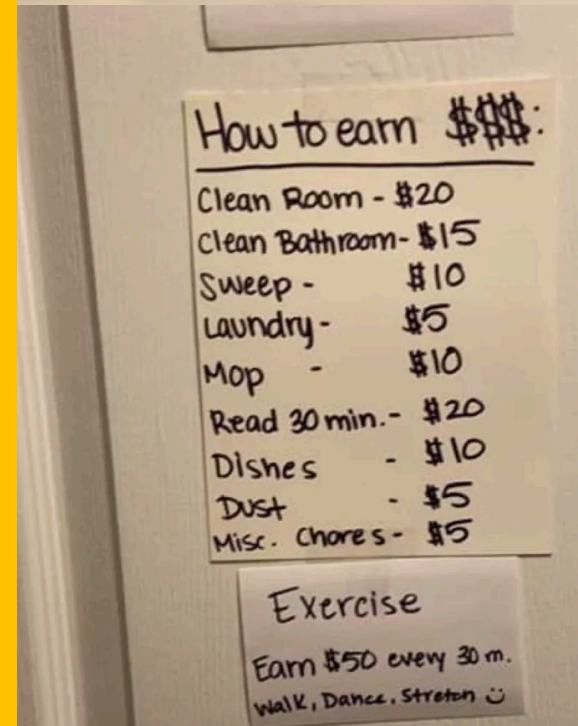 How to earn $$$:
Clean Room - $20
Clean Bathroom - $15
Sweep - $10
Laundry - $5
Mop - $10
Read 30 min. - $20
Dishes - $10
Dust - $5
Misc. Chores - $5
Exercise
Earn $50 every 30 m.
Walk, Dance, Stretch ت